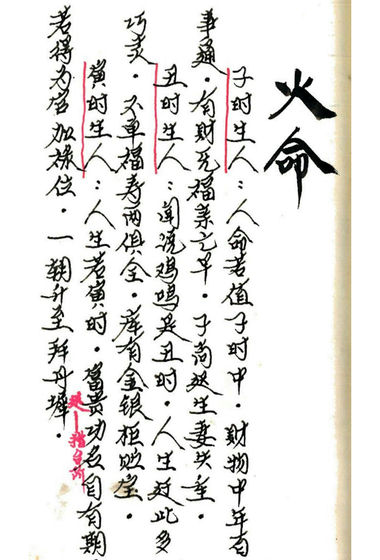 火命
子时生人：人命若值子时中．财物中年百
事通．有财无福亲亡早．子尚生妻失重．
丑时生人：闻说鸡鸣是丑时．人生此多
巧灵．不单福寿两俱全．库有金银柜贮宝．
寅时生人：人生若寅时．富贵功名自有期
若得为官加禄位．一朝升至拜丹墀．